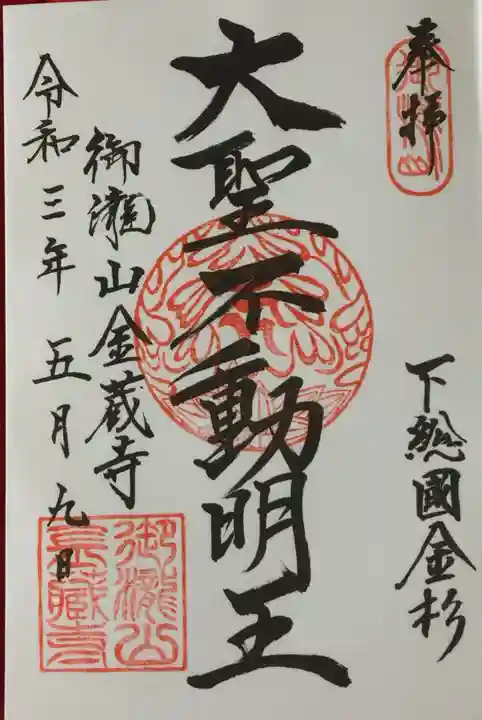 奉拝
下総國金杉
大聖不動明王
御瀧山金蔵寺
令和三年五月九日
御瀧山